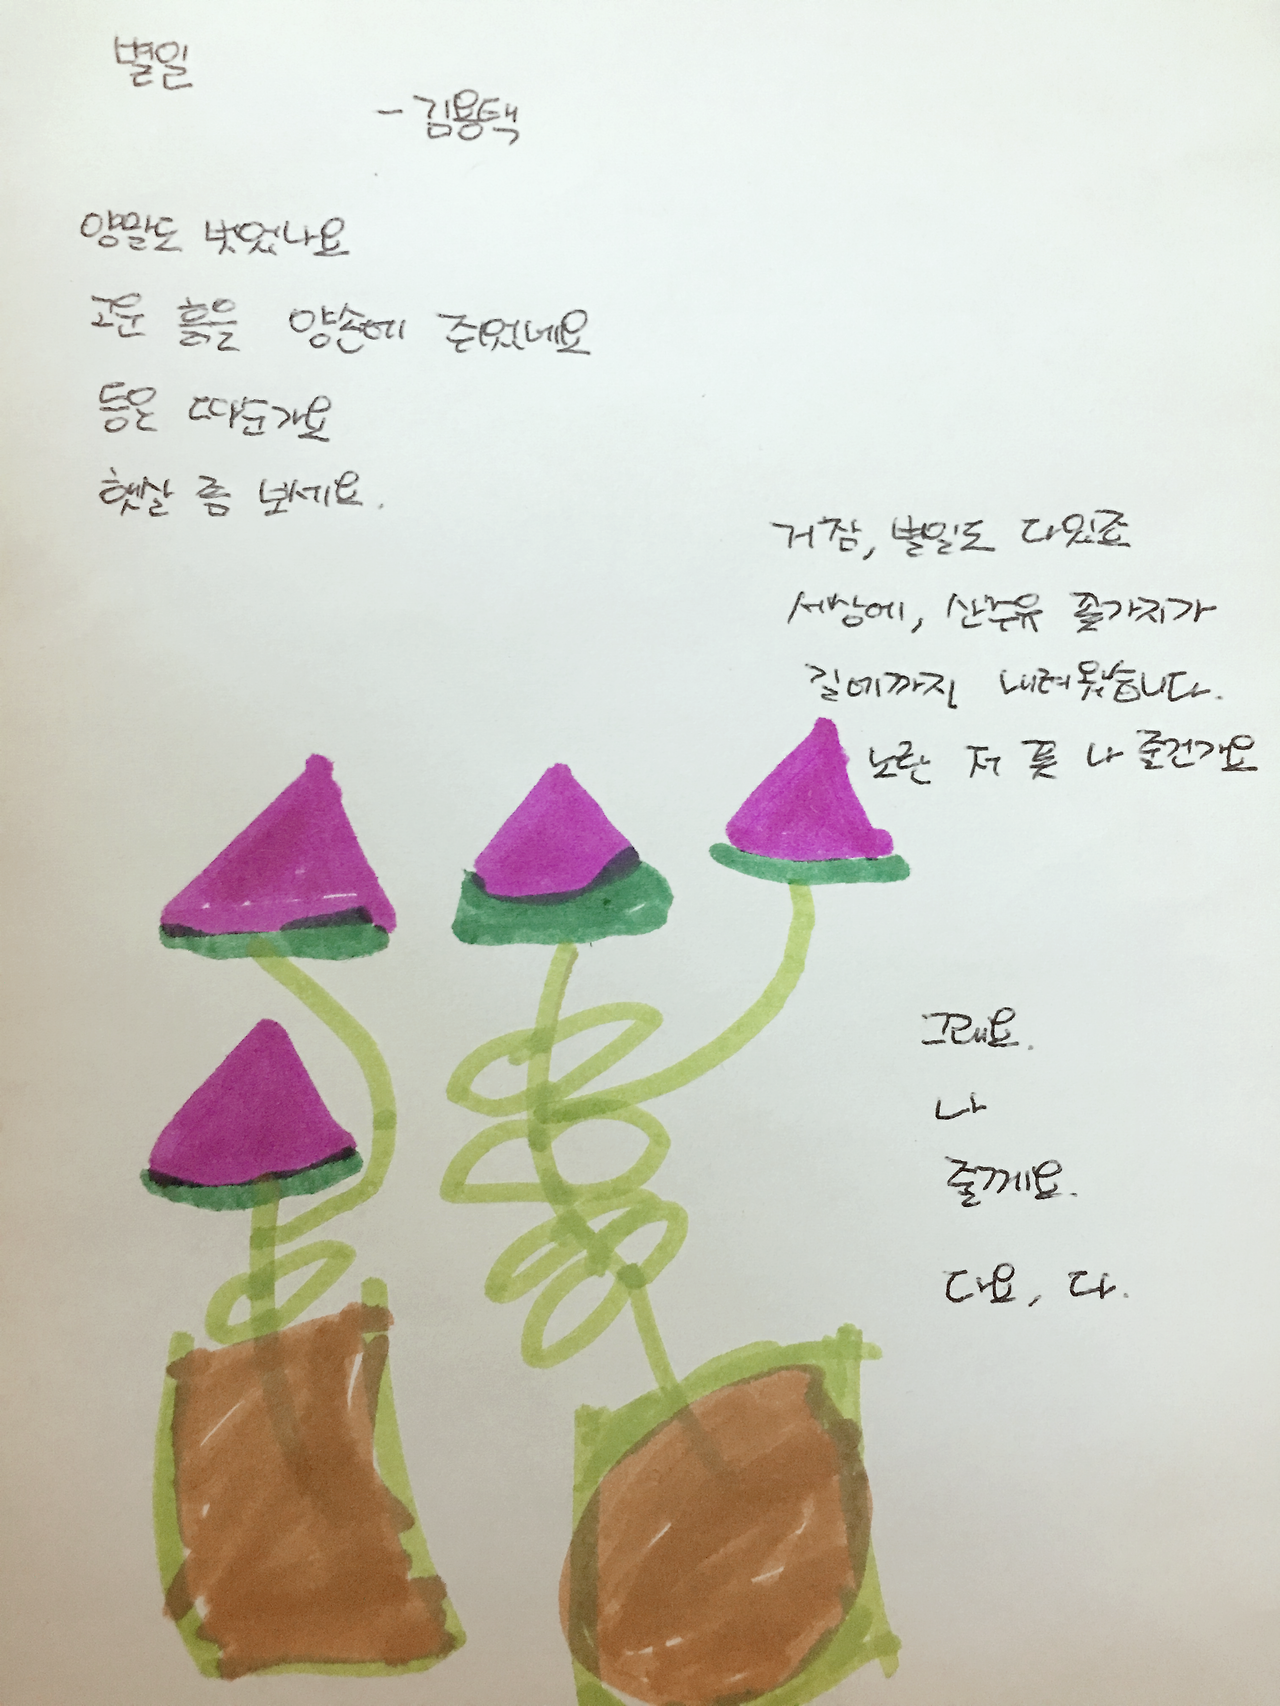 별일
- 김용택
양말도 벗었나요
고운 흙을 양손에 쥐었네요
등은 따순가요
햇살 좀 보세요.
거참, 별일도 다있죠
세상에, 산수유 꽃가지가
길에까지 내려왔습니다.
노란 저 꽃 나 줄건가요
그래요.
나
줄께요.
다요, 다.